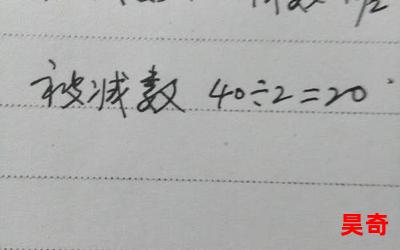 被减数 40÷2=20
昊奇